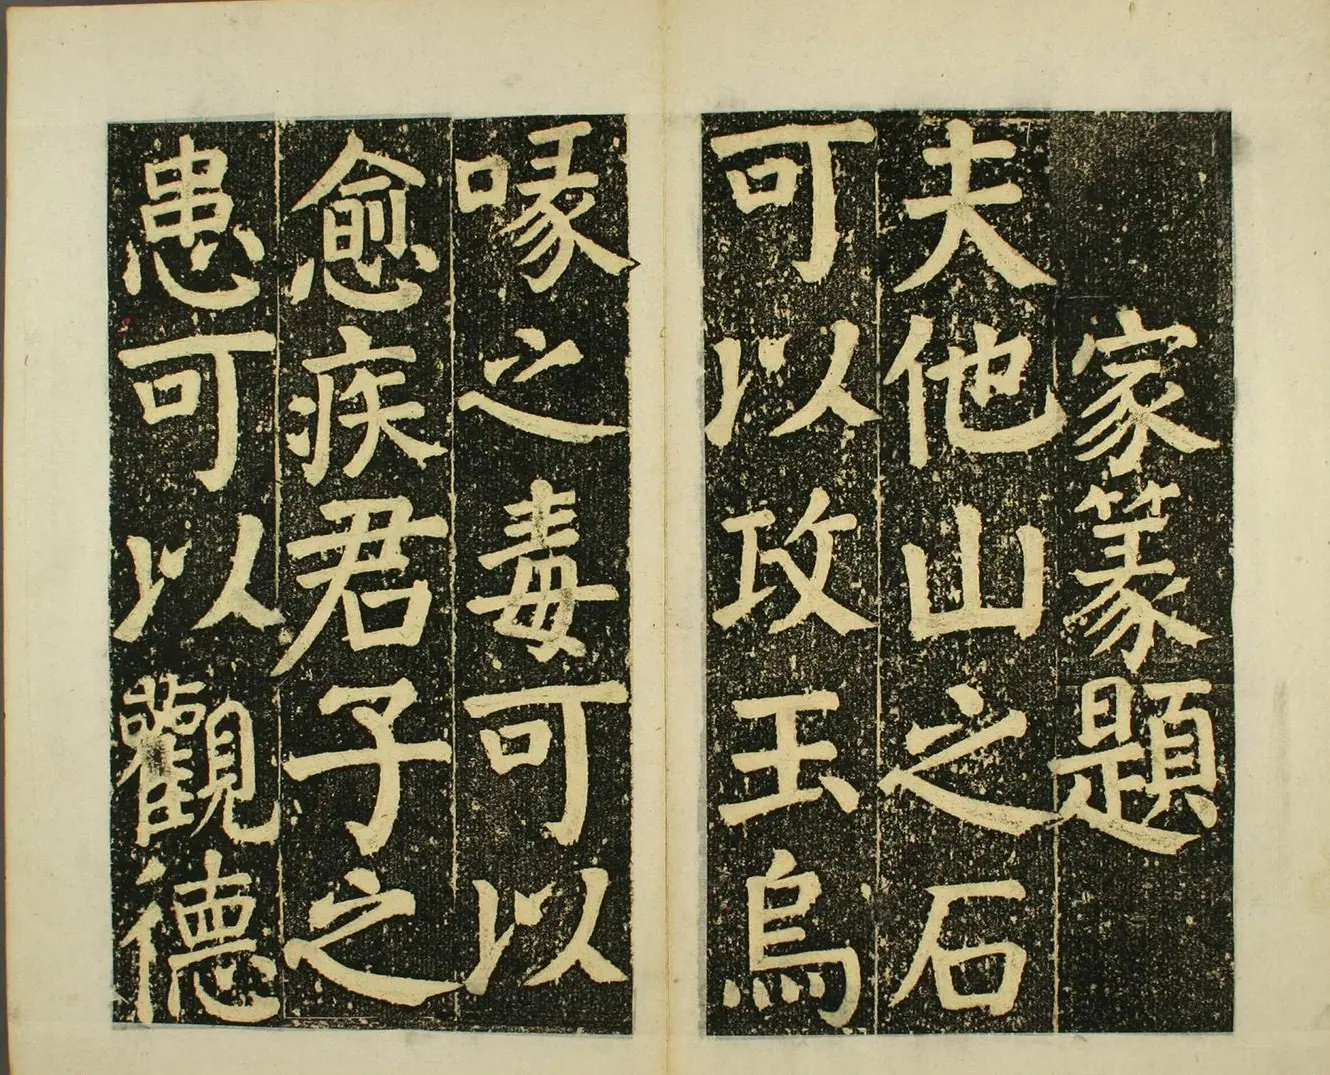 家篆題
夫他山之石
可以攻玉烏
喙之毒可以
愈疾君子之
患可以觀德